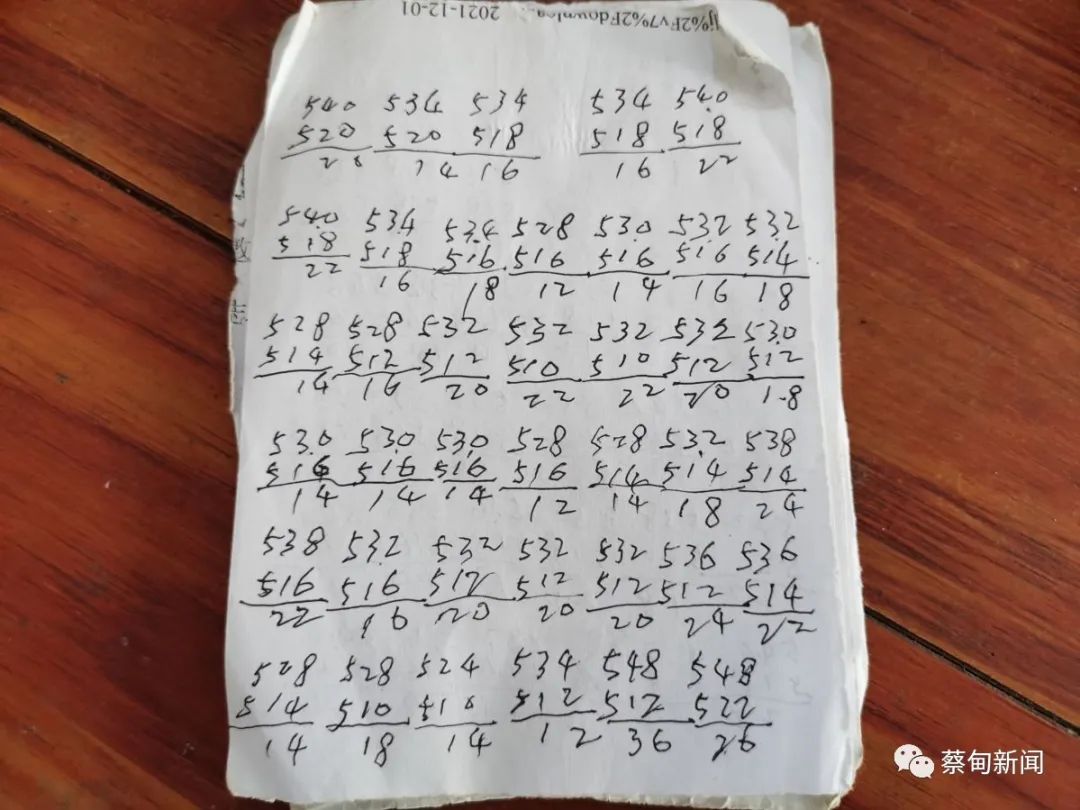 ij%2Fv7%2Fdownloa... 2021-12-01
540 534 534 534 540
520 520 518 518 518
20 14 16 16 22
540 534 534 528 530 532 532
518 518 516 516 516 516 514
22 16 18 12 14 16 18
528 528 532 532 532 532 530
514 512 512 510 510 512 512
14 16 20 22 22 20 18
530 530 530 528 528 532 538
516 516 516 516 514 514 514
14 14 14 12 14 18 24
538 532 532 532 532 536 536
516 516 512 512 512 512 514
22 16 20 20 20 24 22
528 528 524 534 548 548
514 510 510 512 512 522
14 18 14 12 36 26
志
蔡甸新闻